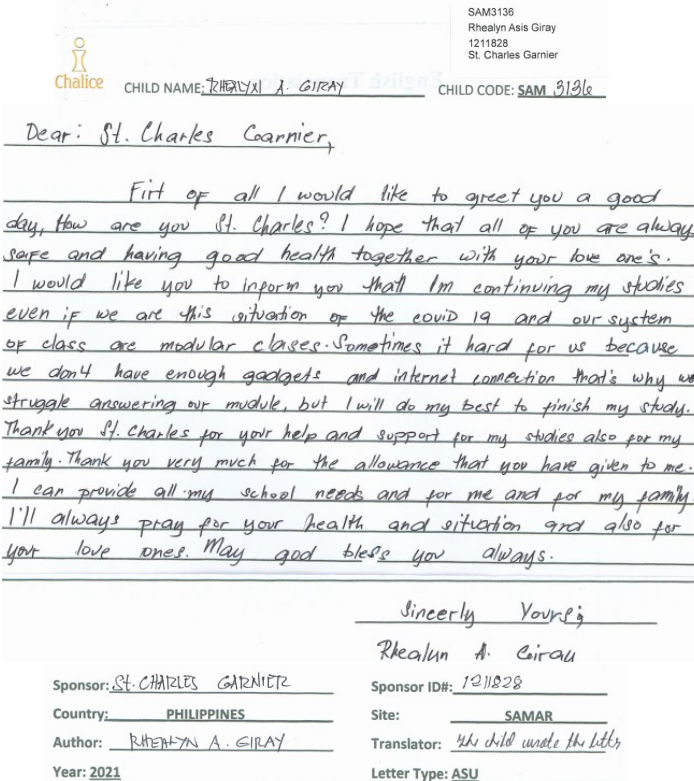 SAM3136
Rhealyn Asis Giray
1211828
St. Charles Garnier
Chalice
CHILD NAME: RHEALYN A. GIRAY CHILD CODE: SAM 3136
Dear: St. Charles Garnier,
Firt of all I would like to greet you a good
day, How are you St. Charles? I hope that all of you are always
safe and having good health together with your love one's.
I would like you to inform you that I'm continuing my studies
even if we are this situation of the covid 19 and our system
of class are modular clases. Sometimes it hard for us because
we don4 have enough gadgets and internet connection that's why we
struggle answering our mudule, but I will do my best to finish my study.
Thank you St. Charles for your help and support for my studies also for my
family. Thank you very much for the allowance that you have given to me.
I can provide all my school needs and for me and for my family.
I'll always pray for your health and situation and also for
your love ones. May god bless you always.
Sincerly Yours;
Rhealyn A. Giray
Sponsor: St. CHARLES GARNIER Sponsor ID#: 1211828
Country: PHILIPPINES Site: SAMAR
Author: RHEALYN A. GIRAY Translator: The child wrote the letter
Year: 2021 Letter Type: ASU